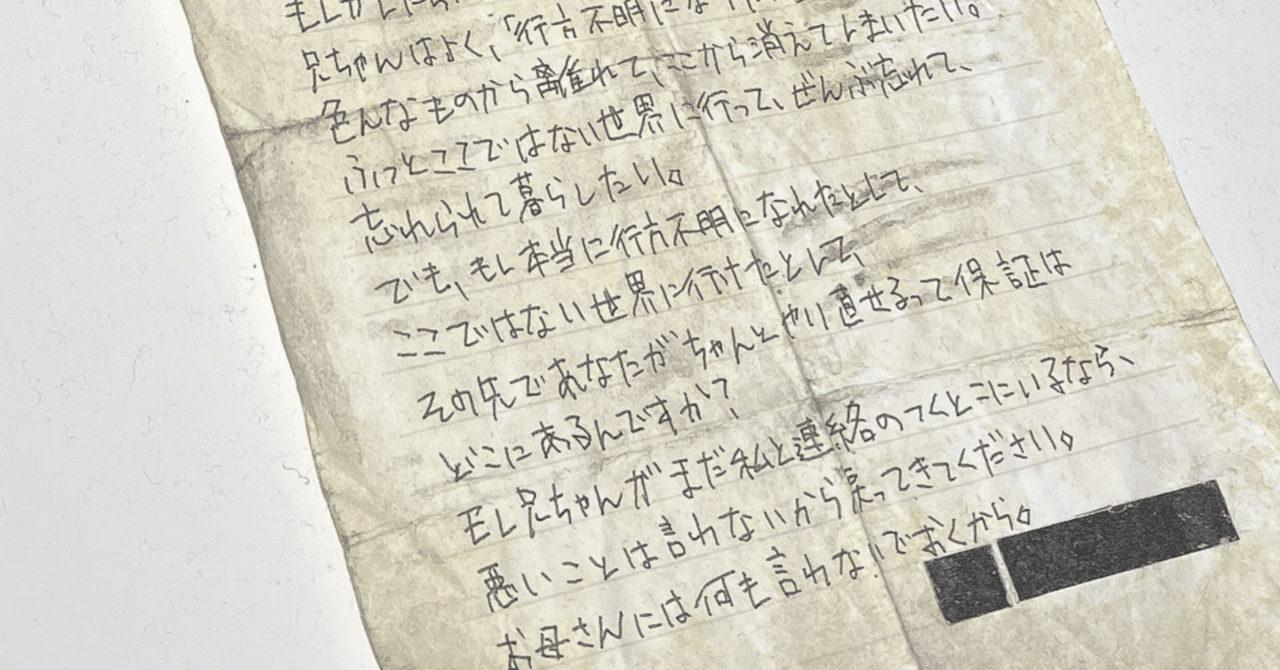 もしかしたら、
兄ちゃんはよく、「行方不明にな
色んなものから離れて、ここから消えてしまいたい。
ふっとここではない世界に行って、ぜんぶ忘れて、
忘れられて暮らしたい。
でも、もし本当に行方不明になれたとして、
ここではない世界に行けたとして、
その先であなたがちゃんとやり直せるって保証は
どこにあるんですか？
もし兄ちゃんがまだ私と連絡のつくとこにいるなら、
悪いことは言わないから戻ってきてください。
お母さんには何も言わないでおくから。